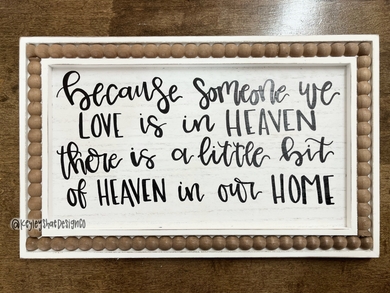 because someone we
LOVE is in HEAVEN
there is a little bit
of HEAVEN in our HOME